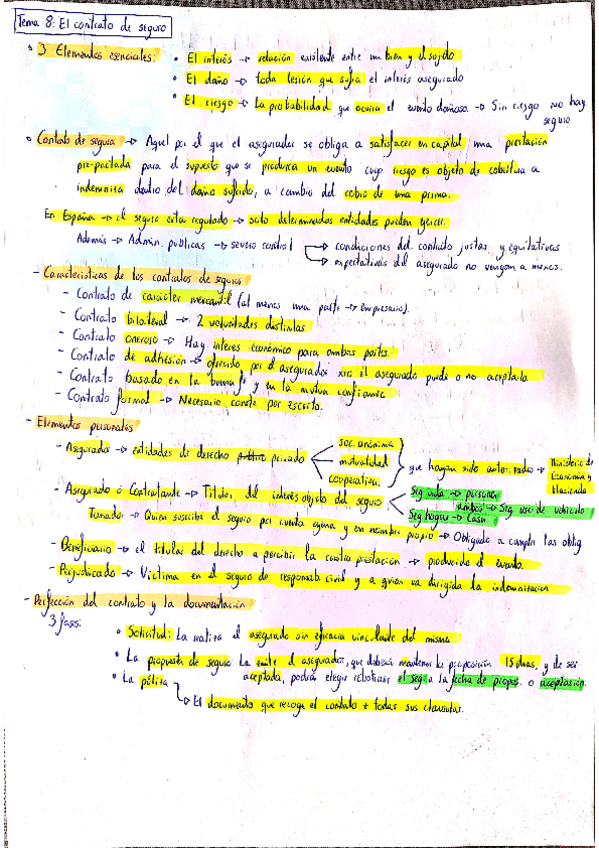 Tema 8: El contrato de seguro
• 3 Elementos esenciales:
• El interés → relación existente entre un bien y el sujeto
• El daño → toda lesión que sufra el interés asegurado
• El riesgo → La probabilidad que ocurra el evento dañoso. → Sin riesgo no hay
seguro
• Contrato de seguro → Aquel por el que el asegurador se obliga a satisfacer un capital una prestación
pre-pactada para el supuesto que se produzca un evento cuyo riesgo es objeto de cobertura a
indemnizar dentro del daño sufrido, a cambio del cobro de una prima.
En España → el seguro esta regulado → solo determinadas entidades pueden ejercer.
Además → Admin. publicas → severo control → condiciones del contrato justas y equitativas
→ expectativas del asegurado no vengan a menos.
- Características de los contratos de seguros
- Contrato de carácter mercantil (al menos una parte → empresario).
- Contrato bilateral → 2 voluntades distintas
- Contrato oneroso → Hay interes económico para ambas partes.
- Contrato de adhesión → ofrecido por el asegurador y el asegurado puede o no aceptarlo
- Contrato basado en la buena fe y en la mutua confianza
- Contrato formal → Necesario conste por escrito.
- Elementos personales
- Asegurador → entidades de derecho privado
soc. anónima
mutualidad
cooperativa.
que hayan sido autorizados → Ministerio de
Economía y
Hacienda
- Asegurado ó Contratante → Titular del interés objeto del seguro
Seg vida → persona
ambos → Seg uso de vehiculo
Seg hogar → Casa
Tomador → Quien suscribe el seguro por cuenta ajena y en nombre propio → Obligado a cumplir las oblig
- Beneficiario → el titular del derecho a percibir la contra prestación → producido el evento.
- Perjudicado → Victima en el seguro de responsab civil y a quien va dirigida la indemnizacion
- Perfección del contrato y la documentación
3 fases:
• Solicitud: La realiza el asegurado sin eficacia vinculante del mismo
• La propuesta de seguro La emite el asegurador, que deberá mantener la proposición 15 dias, y de ser
aceptada, podrá elegir retrotraer el seg a la fecha de propos. o aceptación.
• La póliza
→ El documento que recoge el contrato + todas sus clausulas.